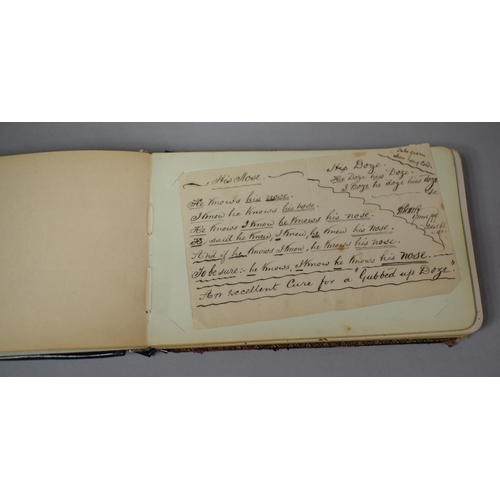 His Nose.
He knows his nose.
I know he knows his nose.
He knows I know he knows his nose.
He said he knew, I knew, he knew his nose.
And if he knows I know, he knows his nose.
To be sure:- he knows, I know he knows his nose.
An excellent Cure for a "Gubbed up Doze."
His Doze.
He Doze his Doze.
I Doze he doze his doze